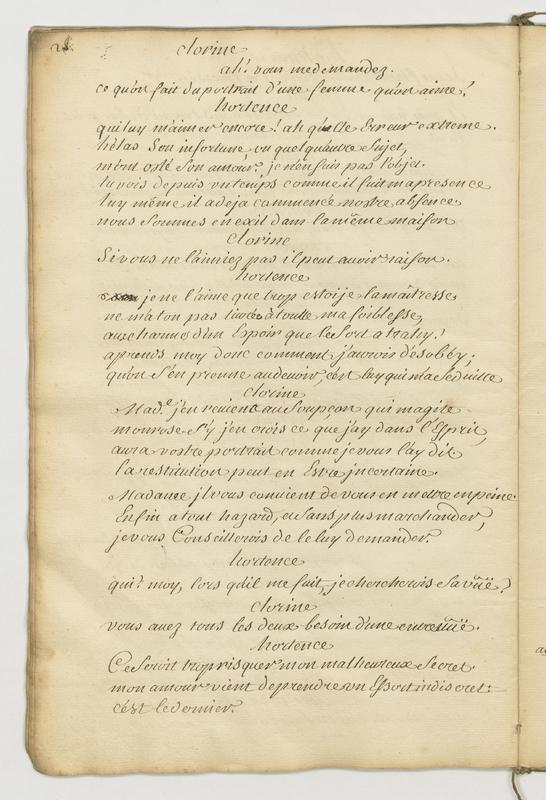 28.
clorine
ah! vous me demandez.
ce qu'on fait du portrait d'une femme qu'on aime!
hortence
qui luy m'aimer encore! ah quelle Erreur extreme.
hélas Son infortune ou quelqu'autre Sujet,
m'ont osté Son amour, je n'en suis pas l'objet.
tu vois depuis un temps comme il fuit ma presence
luy même il a deja commencé nostre absence
nous Sommes en exil dans la même maison
clorine
Si vous ne l'aimiez pas il peut avoir raison.
hortence
je ne l'aime que trop estoije la maîtresse
ne m'a t'on pas livrée à toutte ma foiblesse
aux charmes d'un Espoir que le Sort a trahy!
aprends moy donc comment j'aurois désobéy;
qu'on S'en prenne au devoir, c'est luy qui m'a Séduitte
clorine
Mad.e j'en reviens au Soupçon qui m'agite
monrose S'y j'en crois ce que j'ay dans l'Esprit,
aura vostre portrait comme je vous l'ay dit
la restitution peut en Estre jncertaine.
Madame jl vous convient de vous en mettre en peine.
Enfin a tout hazard, et Sans plus marchander,
je vous Conseillerois de le luy demander.
hortence
qui? moy, lors qu'il me fuit, je chercherois Sa vûë?
clorine
vous avez tous les deux besoin d'une entrevûë.
hortence
Ce Seroit trop risquer mon malheureux Secret.
mon amour vient de prendre un Essort indiscret:
c'est le dernier.